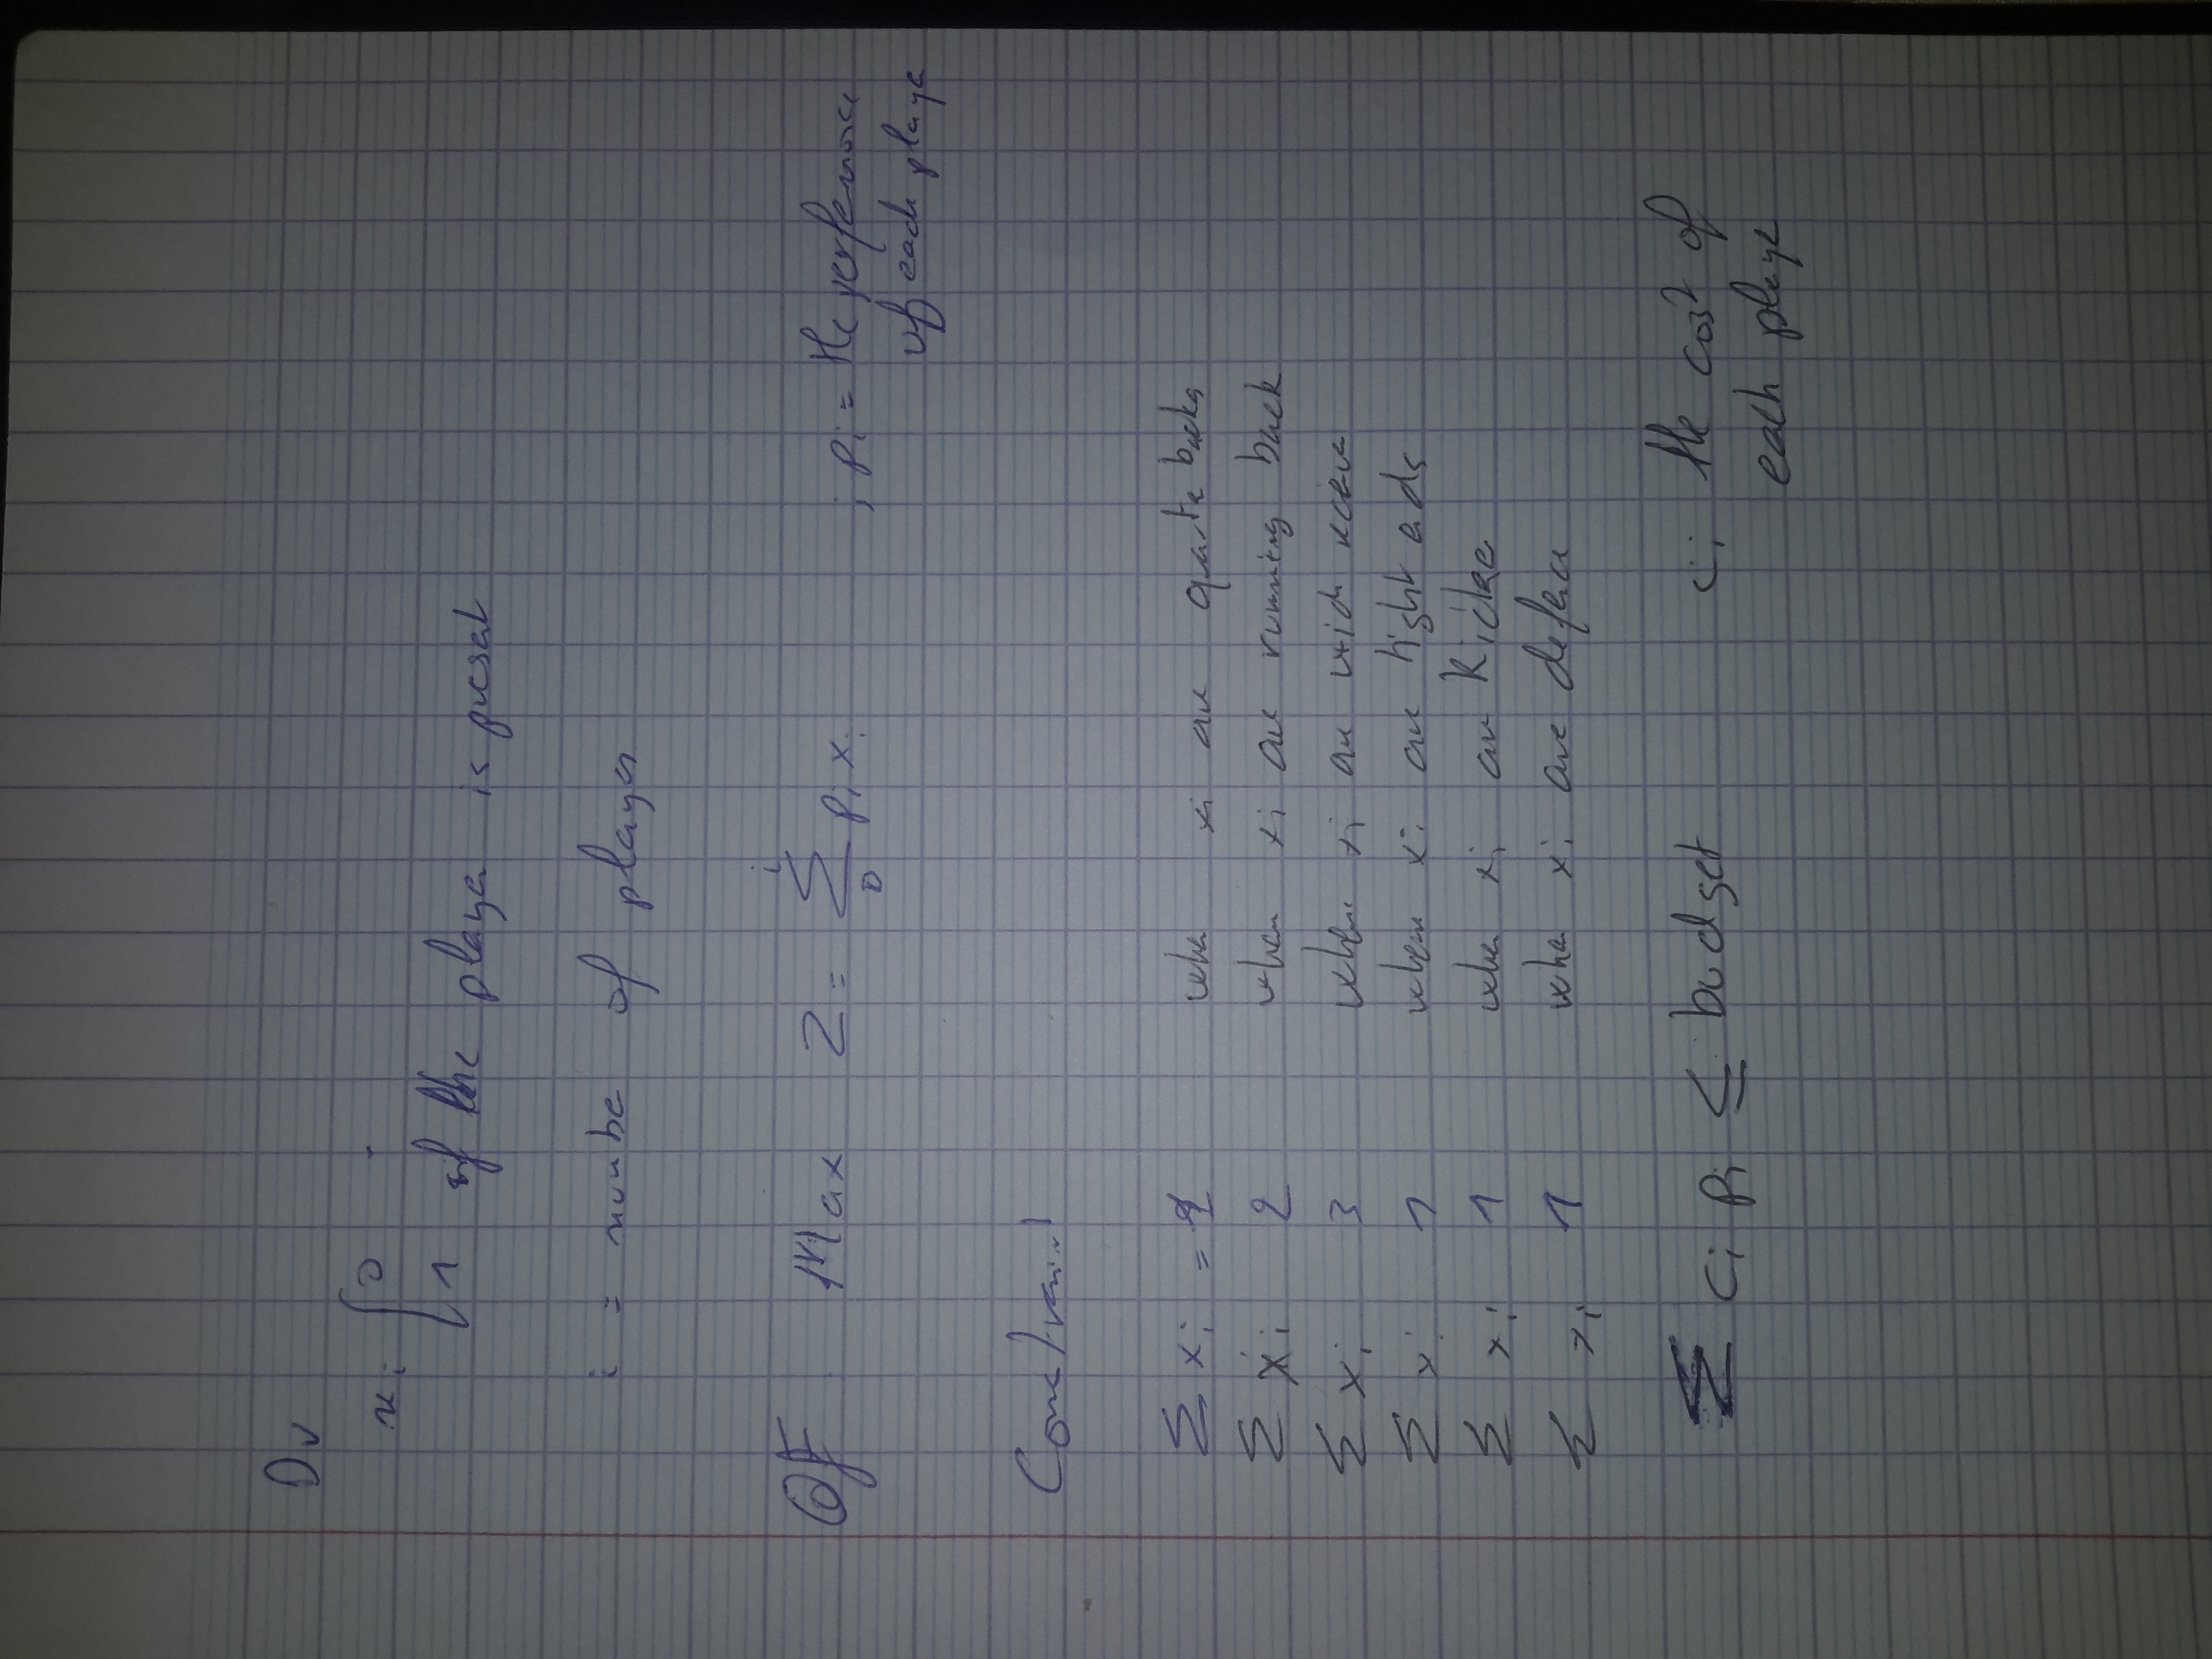 Dv
xi { 0
1 if the player is present
i = number of player
OF Max Z = Σ pi xi ; pi = the performance
i
0
of each player
Constraint
Σ xi = 1 when xi are quarter backs
Σ xi 2 when xi are running back
Σ xi 3 when xi are wide
Σ xi 1 when xi are tight ends
Σ xi 1 when xi are Kicker
Σ xi 1 when xi are defence
Σ ci pi ≤ budget ci the cost of
each player